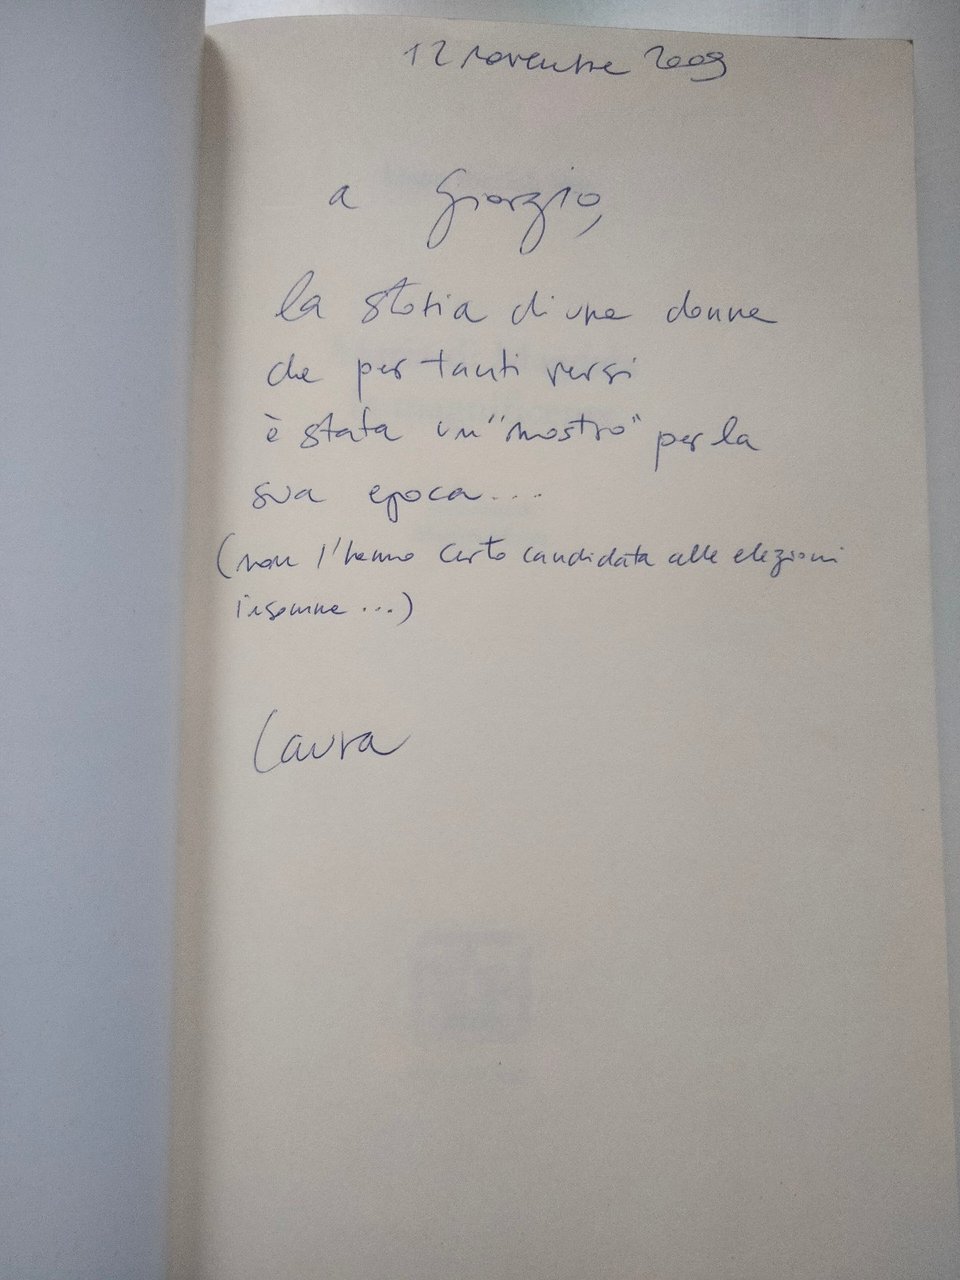 12 novembre 2009
a Giorgio,
la storia di una donna
che per tanti versi
è stata un "mostro" per la
sua epoca....
(non l'hanno certo candidata alle elezioni
insomma ...)
Laura